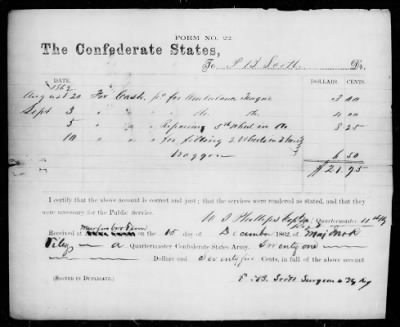 FORM No. 22.
The Confederate States,
To P B Scott Dr.
DATE. DOLLARS. CENTS.
1862
August 20 For Cash pd for Ambulance Tongue 3 00
Sept 3 " " " " " 4 00
5 " " " Repairing 5th wheel in do 8 25
10 " " for filling 2 wheels in
Waggon 6 50
$21.75
I certify that the above account is correct and just; that the services were rendered as stated, and that they
were necessary for the Public Service.
W S Phillips Capt Quartermaster 11th Ky
Received at Murfreesboro Tenn on the 15 day of December 1862, of Maj Mok
a Quartermaster Confederate States Army, Twenty one
Dollars and Seventy five Cents, in full of the above account.
(SIGNED IN DUPLICATE.) P. B. Scott Surgeon Ky